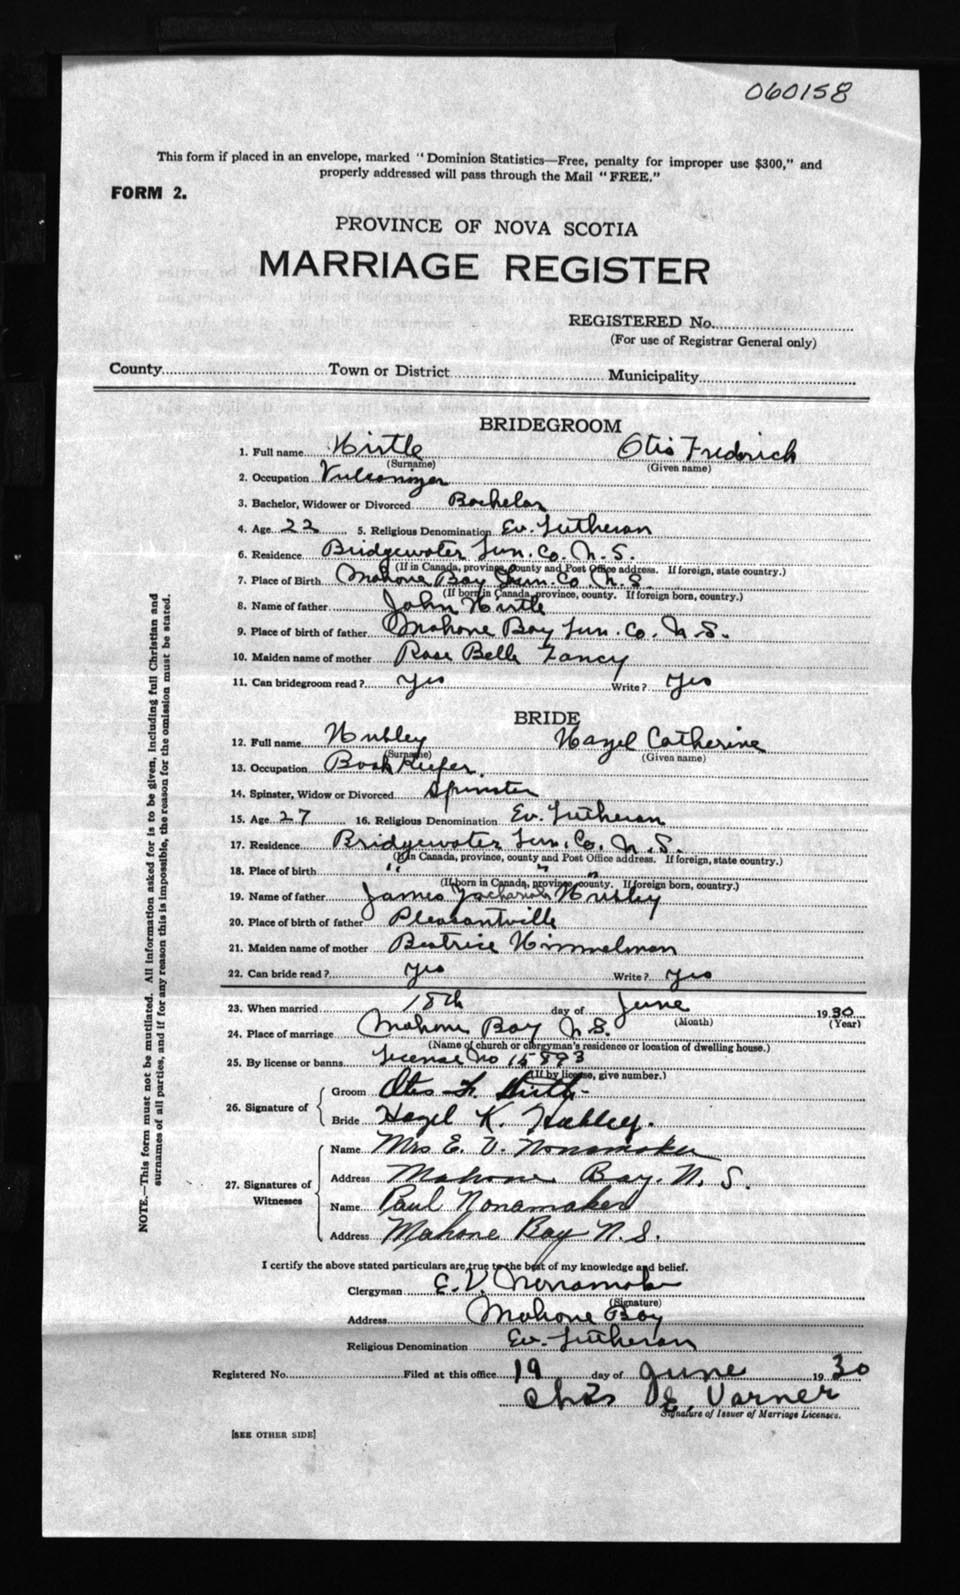 060158
This form if placed in an envelope, marked "Dominion Statistics—Free, penalty for improper use $300," and
properly addressed will pass through the Mail "FREE."
FORM 2.
PROVINCE OF NOVA SCOTIA
MARRIAGE REGISTER
REGISTERED No.
(For use of Registrar General only)
County Town or District Municipality
BRIDEGROOM
1. Full name Hirtle Otis Frederick
(Surname) (Given name)
2. Occupation Vulcanizer
3. Bachelor, Widower or Divorced Bachelor
4. Age 22 5. Religious Denomination Ev. Lutheran
6. Residence Bridgewater Lun. Co. N. S.
(If in Canada, province, county and Post Office address. If foreign, state country.)
7. Place of Birth Mahone Bay Lun. Co. N. S.
(If born in Canada, province, county. If foreign born, country.)
8. Name of father John Hirtle
9. Place of birth of father Mahone Bay Lun. Co. N. S.
10. Maiden name of mother Rose Belle Zancy
11. Can bridegroom read? Yes Write? Yes
BRIDE
12. Full name Hubley Hazel Catherine
(Surname) (Given name)
13. Occupation Book Keeper.
14. Spinster, Widow or Divorced Spinster
15. Age 27 16. Religious Denomination Ev. Lutheran
17. Residence Bridgewater Lun. Co. N. S.
(If in Canada, province, county and Post Office address. If foreign, state country.)
18. Place of birth " " "
(If born in Canada, province, county. If foreign born, country.)
19. Name of father James Zacharias Hubley
20. Place of birth of father Pleasantville
21. Maiden name of mother Beatrice Himmelman
22. Can bride read? Yes Write? Yes
23. When married 18th day of June 1930
(Month) (Year)
24. Place of marriage Mahone Bay N. S.
(Name of church or clergyman's residence or location of dwelling house.)
25. By license or banns License No 15893
(If by license, give number.)
26. Signature of Groom Otis F. Hirtle
Bride Hazel K. Hubley.
27. Signatures of Witnesses Name Mrs E. V. Nonamaker
Address Mahone Bay. N. S.
Name Paul Nonamaker
Address Mahone Bay N. S.
I certify the above stated particulars are true to the best of my knowledge and belief.
Clergyman E. V. Nonamaker
(Signature)
Address Mahone Bay
Religious Denomination Ev. Lutheran
Registered No. Filed at this office 19 day of June 1930
Chas E. Varner
Signature of Issuer of Marriage Licenses.
[SEE OTHER SIDE]
NOTE.—This form must not be mutilated. All information asked for is to be given, including full Christian and
surnames of all parties, and if for any reason this is impossible, the reason for the omission must be stated.